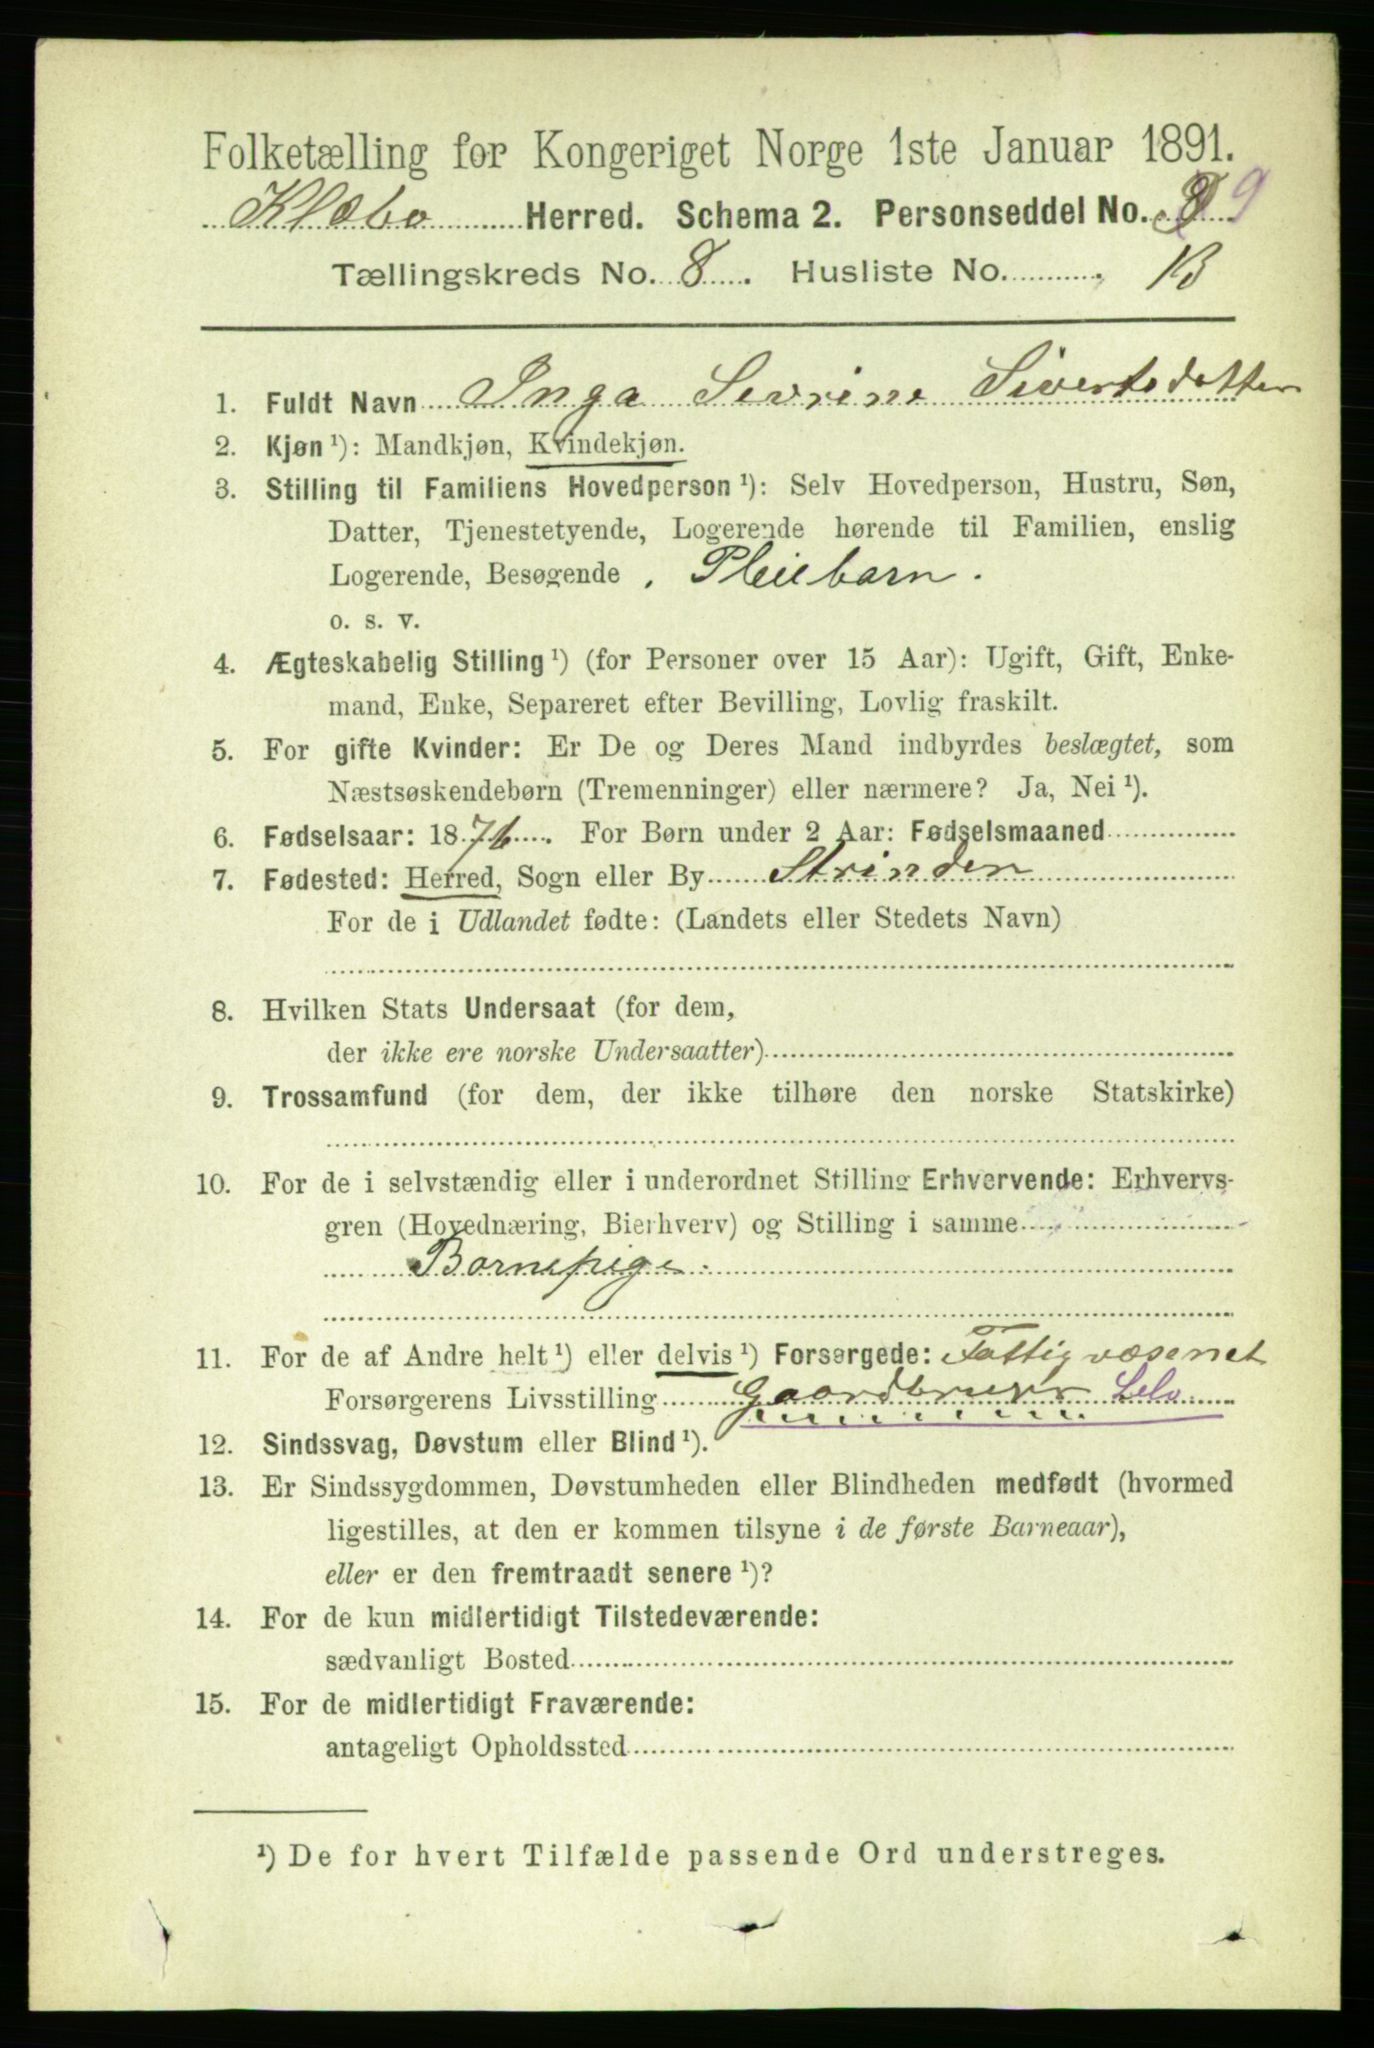 Folketælling for Kongeriget Norge 1ste Januar 1891.
Klæbo Herred. Schema 2. Personseddel No. 9
Tællingskreds No. 8. Husliste No.
1. Fuldt Navn Inga Sevrine Sivertsdatter
2. Kjøn ¹): Mandkjøn, Kvindekjøn.
3. Stilling til Familiens Hovedperson ¹): Selv Hovedperson, Hustru, Søn,
Datter, Tjenestetyende, Logerende hørende til Familien, enslig
Logerende, Besøgende, Pleiebarn.
o. s. v.
4. Ægteskabelig Stilling ¹) (for Personer over 15 Aar): Ugift, Gift, Enke-
mand, Enke, Separeret efter Bevilling, Lovlig fraskilt.
5. For gifte Kvinder: Er De og Deres Mand indbyrdes beslægtet, som
Næstsøskendebørn (Tremenninger) eller nærmere? Ja, Nei ¹).
6. Fødselsaar: 1876. For Børn under 2 Aar: Fødselsmaaned
7. Fødested: Herred, Sogn eller By Strinden
For de i Udlandet fødte: (Landets eller Stedets Navn)
8. Hvilken Stats Undersaat (for dem,
der ikke ere norske Undersaatter)
9. Trossamfund (for dem, der ikke tilhøre den norske Statskirke)
10. For de i selvstændig eller i underordnet Stilling Erhvervende: Erhvervs-
gren (Hovednæring, Bierhverv) og Stilling i samme
Barnepige.
11. For de af Andre helt ¹) eller delvis ¹) Forsørgede: Fattigvæsenet
Forsørgerens Livsstilling Gaardbruger Selv
12. Sindssvag, Døvstum eller Blind ¹).
13. Er Sindssygdommen, Døvstumheden eller Blindheden medfødt (hvormed
ligestilles, at den er kommen tilsyne i de første Barneaar),
eller er den fremtraadt senere ¹)?
14. For de kun midlertidigt Tilstedeværende:
sædvanligt Bosted
15. For de midlertidigt Fraværende:
antageligt Opholdssted
¹) De for hvert Tilfælde passende Ord understreges.